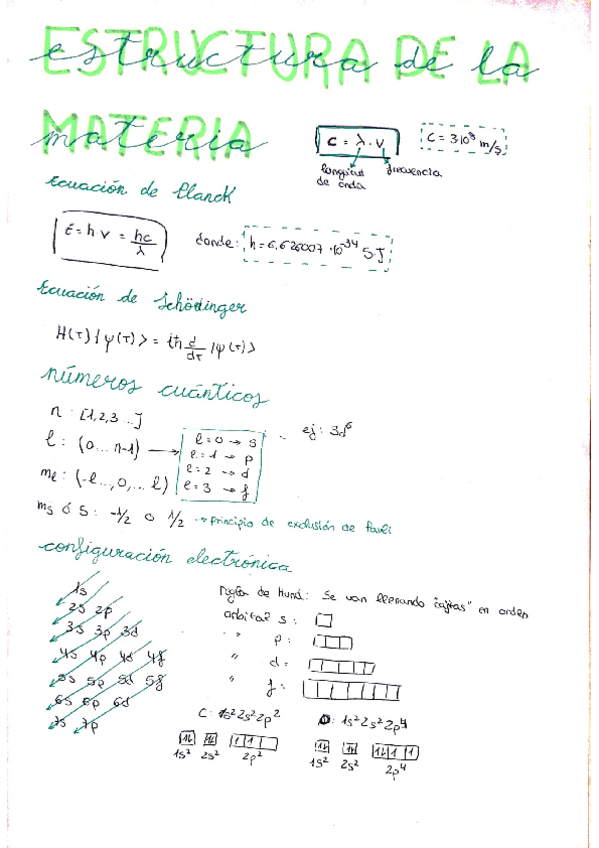 ESTRUCTURA DE LA
estructura de la
MATERIA
materia
C = λ · ν
C = 3·10⁸ m/s
longitud de onda
frecuencia
Ecuación de Planck
E = h ν = hc/λ
donde: h = 6,626007 · 10⁻³⁴ S·J
Ecuación de Schödinger
H(τ) | ψ(τ) > = iħ d/dτ | ψ(τ) >
números cuánticos
n : [1,2,3 ...]
ej: 3d⁶
l : (0... n-1) →
l = 0 → s
l = 1 → p
l = 2 → d
l = 3 → f
ml : (-l..., 0, ... l)
ms ó s : -1/2 o 1/2 → principio de exclusión de Pauli
configuración electrónica
1s
2s 2p
3s 3p 3d
4s 4p 4d 4f
5s 5p 5d 5f
6s 6p 6d
7s 7p
regla de Hund: Se van llenando "cajitas" en orden
orbital s :
" " p :
" d :
" f :
C : 1s² 2s² 2p²
1s² 2s² 2p²
: 1s² 2s² 2p⁴
1s² 2s² 2p⁴